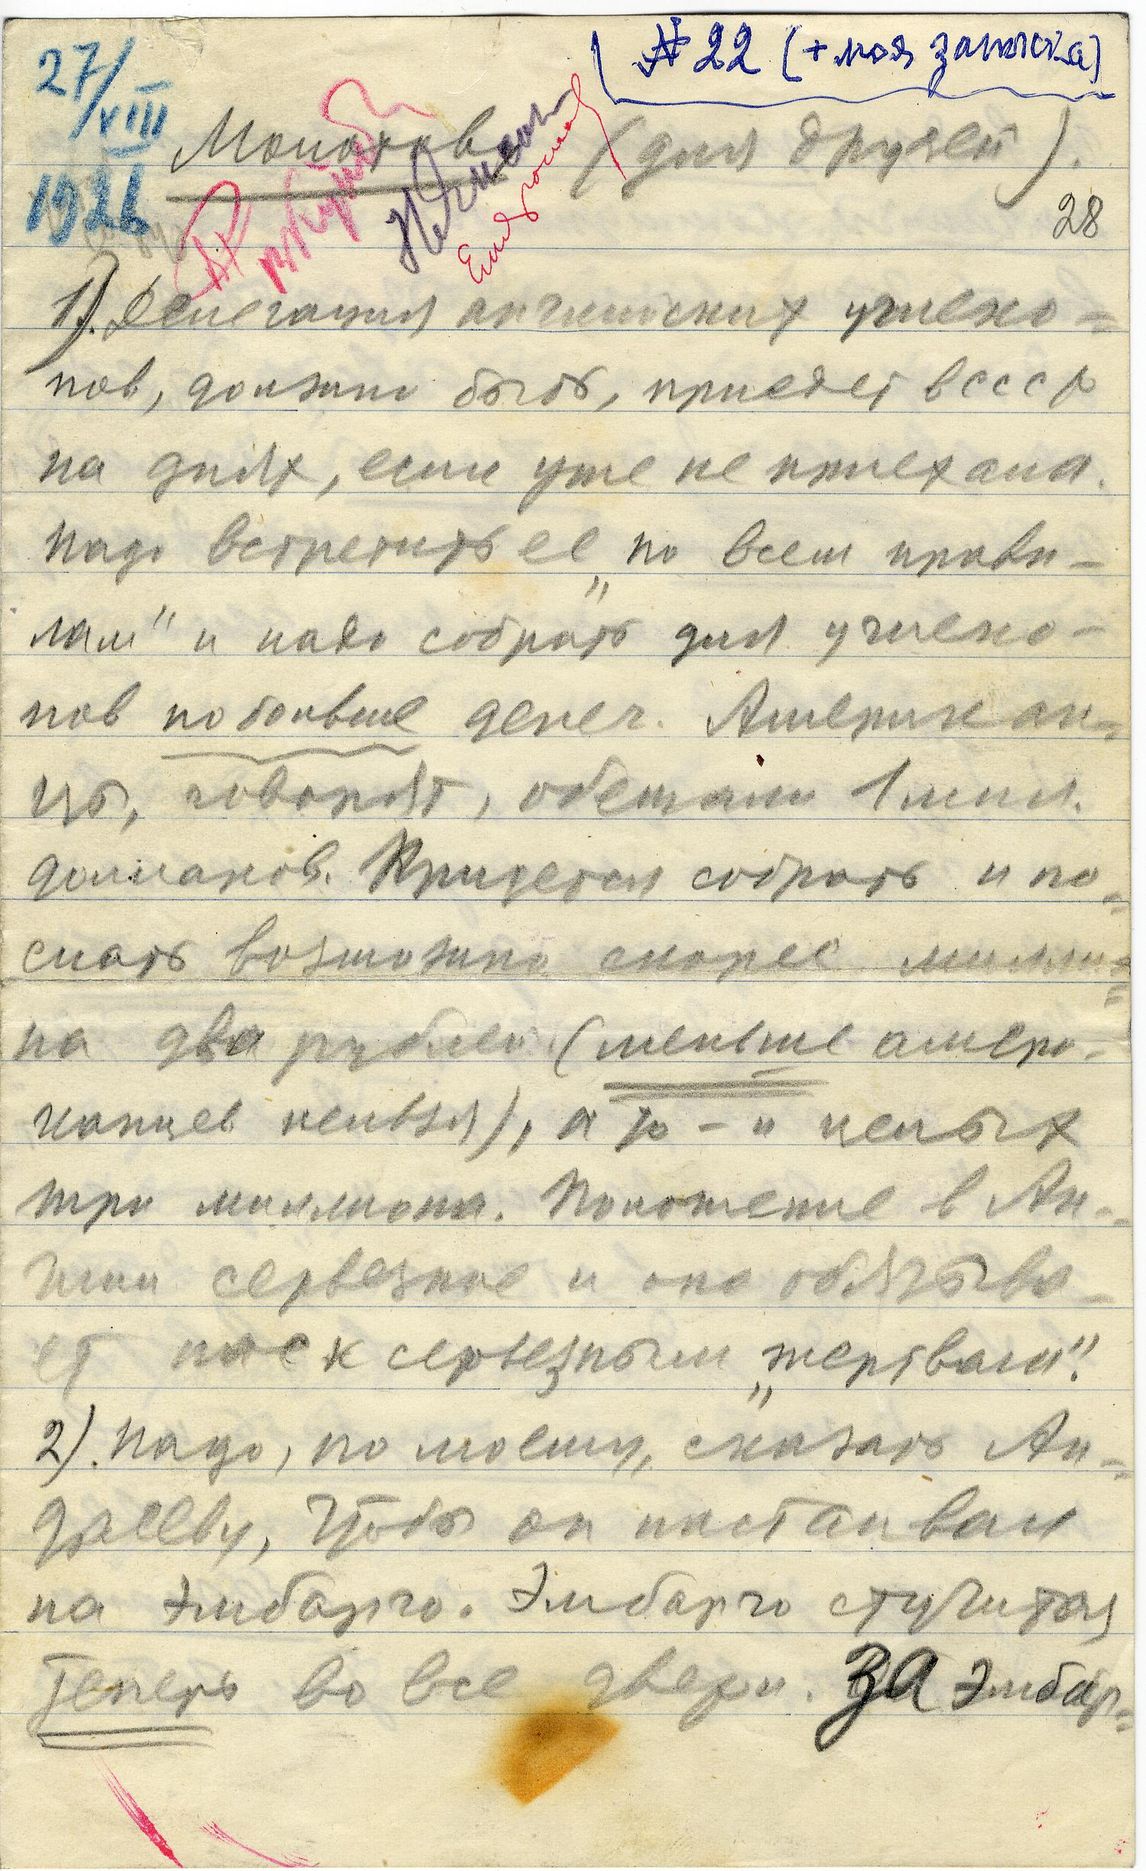 № 22 (+ моя записка)
27/VIII
1926
Молотову (для друзей).
28
1). Делегация английских углеко-
пов, должно быть, приедет в СССР
на днях, если уже не приехала.
Надо встретить ее „по всем прави-
лам" и надо собрать для углеко-
пов побольше денег. Американ-
цы, говорят, обещали 1 мил.
долларов. Придется собрать и по-
слать возможно скорее миллио-
на два рублей (меньше амери-
канцев нельзя), а то – и целых
три миллиона. Положение в Ан-
глии серьезное и оно обязыва-
ет нас к серьезным „жертвам".
2). Надо, по моему, сказать Ан-
дрееву, чтобы он настаивал
на эмбарго. Эмбарго стучится
теперь во все двери. За эмбар-